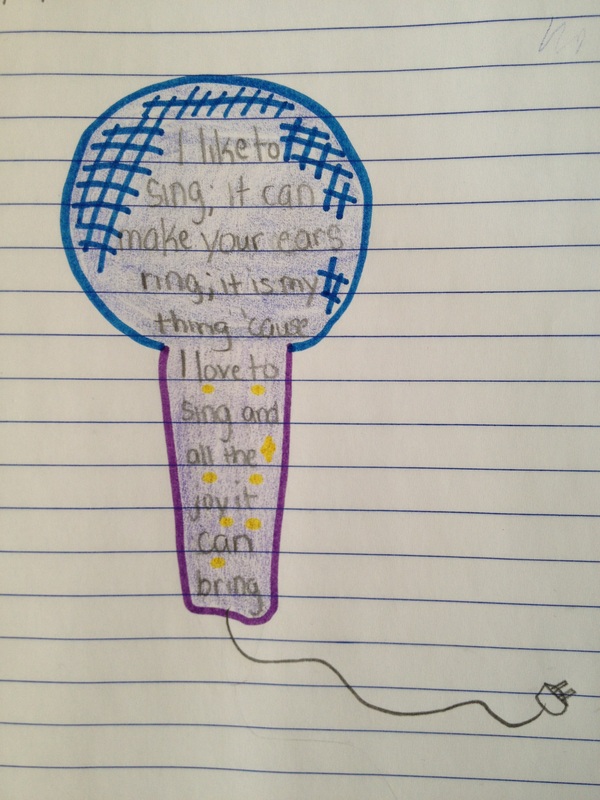 I like to
sing; it can
make your ears
ring; it is my
thing 'cause
I love to
sing and
all the
joy it
can
bring